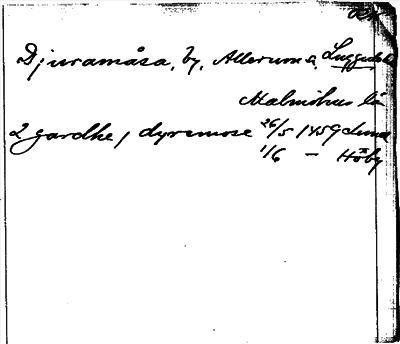 Djuramåsa, by, Allerums, Luggude
Malmöhus lä
2 gardhe, dyremose 26/5 1459 Lund
1/6 — Höby